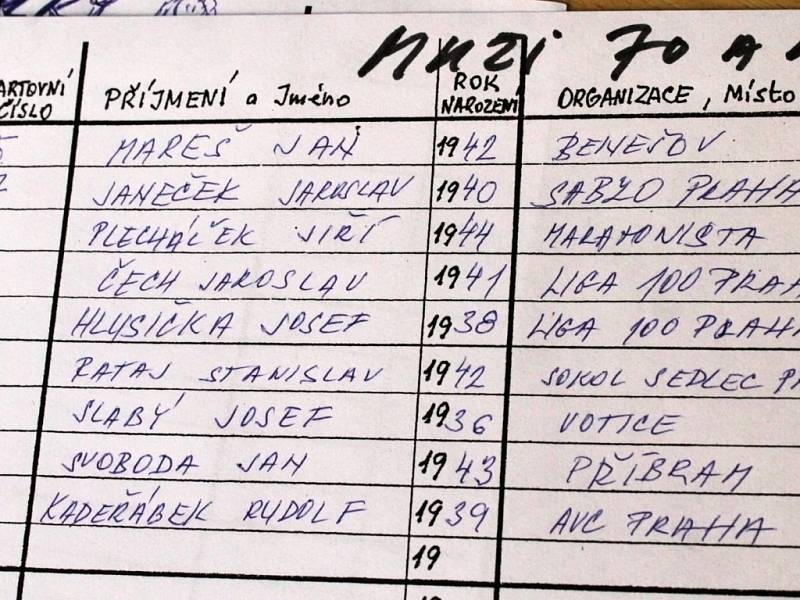 MUŽI 70 A
ARTOVNÍ ČÍSLO PŘÍJMENÍ a Jméno ROK NAROZENÍ ORGANIZACE, Místo
MAREŠ JAN 1942 BENEŠOV
JANEČEK JAROSLAV 1940 SABZO PRAHA
PLECHÁČEK JIŘÍ 1944 MARATONISTA
ČECH JAROSLAV 1941 LIGA 100 PRAH
HLUSIČKA JOSEF 1938 LIGA 100 PRAH
RATAJ STANISLAV 1942 SOKOL SEDLEC P
SLABÝ JOSEF 1936 VOTICE
SVOBODA JAN 1943 PŘÍBRAM
KADEŘÁBEK RUDOLF 1939 AVC PRAHA
19
19